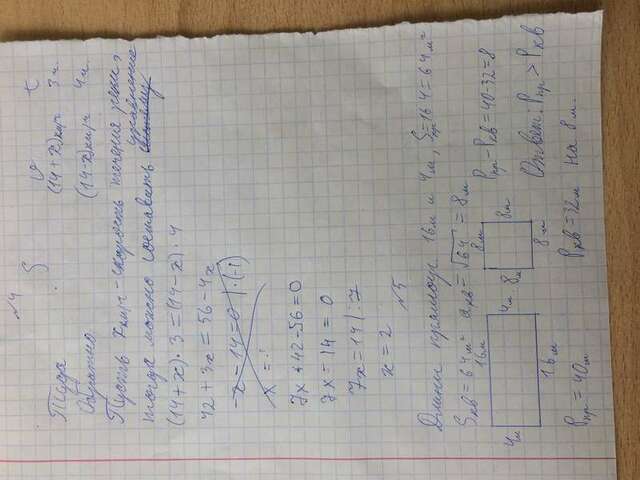 №4
S V t
Туда (14+x)км/ч 3ч.
Обратно (14-x)км/ч 4ч.
Пусть x км/ч - скорость течения реки,
тогда можно составить уравнение
(14+x)·3=(14-x)·4
42+3x=56-4x
-x-14=0 |·(-1)
x =
7x+42-56=0
7x-14=0
7x=14 |:7
x=2
№5
Длины прямоуг. 16м и 4м, Sпр=16·4=64м²
Sкв=64м² aкв=√64=8м
16м 8м
4м 4м 8м 8м Pпр-Pкв=40-32=8
16м 8м Ответ: Pпр>Pкв
Pпр=40м Pкв=32м на 8м.